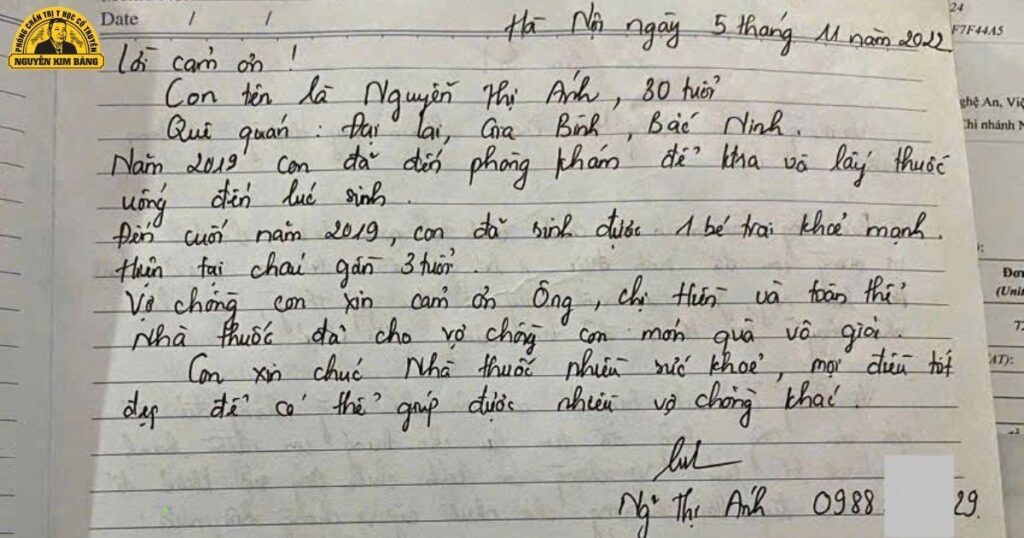 PHÒNG CHẨN TRỊ Y HỌC CỔ TRUYỀN
NGUYỄN KIM BẢNG
Date / /
Hà Nội ngày 5 tháng 11 năm 2022
24
F7F44A5
Lời cảm ơn !
Con tên là Nguyễn Thị Ánh, 30 tuổi
ghệ An, Việ
Quê quán : Đại Lai, Gia Bình, Bắc Ninh.
Chi nhánh N
Năm 2019 con đã đến phòng khám để kha và lấy thuốc
uống đến lúc sinh.
Đến cuối năm 2019, con đã sinh được 1 bé trai khoẻ mạnh.
Hiện tại cháu gần 3 tuổi.
Đơn
Vợ chồng con xin cảm ơn Ông, chị Hiền và toàn thể
(Unit
Nhà thuốc đã cho vợ chồng con món quà vô giá.
Con xin chúc Nhà thuốc nhiều sức khoẻ, mọi điều tốt
AT):
đẹp để có thể giúp được nhiều vợ chồng khác.
Ng~ Thị Ánh 0988 29.